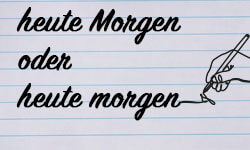 heute Morgen
oder
heute morgen